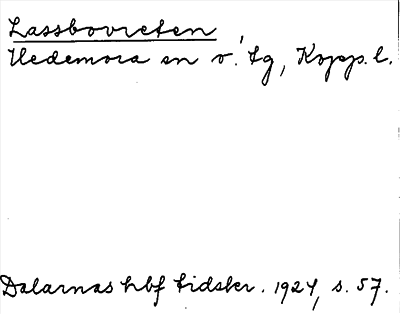 Lassbovreten
Hedemora sn v. tg, Kopp. l.
Dalarnas hbf tidskr. 1924, s. 57.